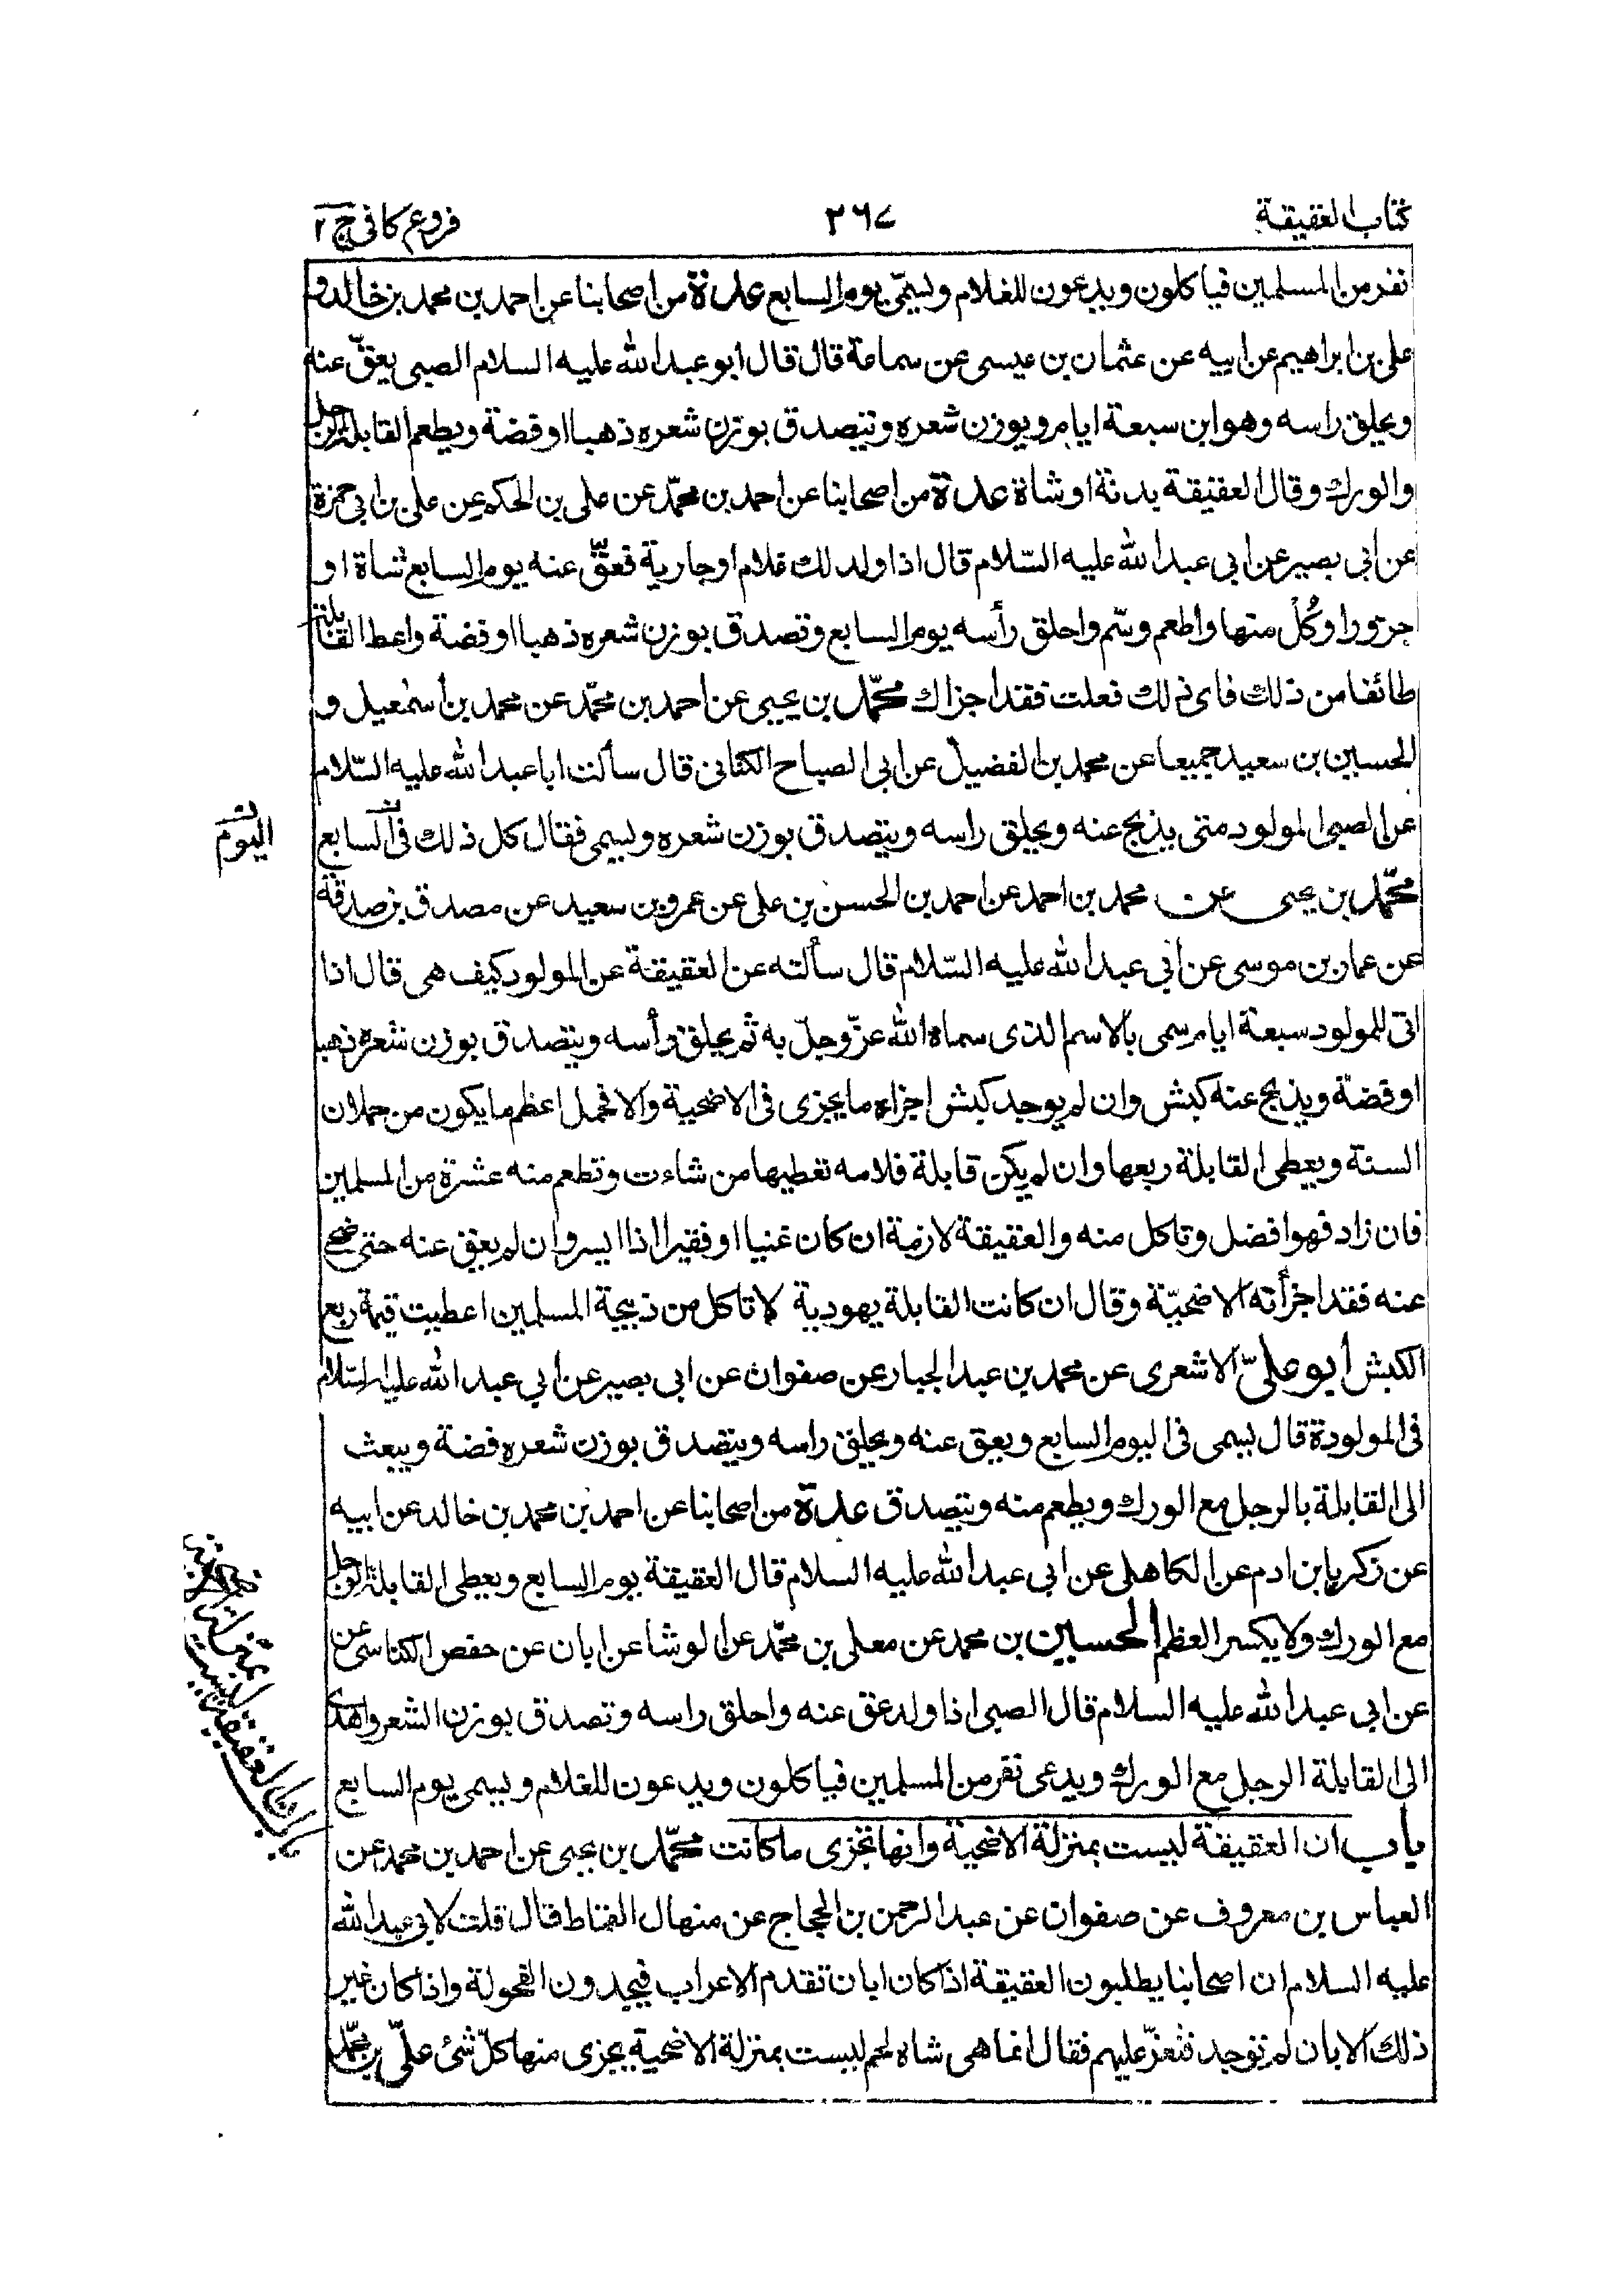 كتاب العقيقة
٣٦٧
فروع كافي ج ٢
نفر من المسلمين فياكلون ويدعون للغلام ويسمّى يوم السابع عدة من اصحابنا عن احمد بن محمد بن خالد و
على بن ابراهيم عن ابيه عن عثمان بن عيسى عن سماعة قال قال ابو عبد الله عليه السلام الصبى يعقّ عنه
ويحلق راسه وهو ابن سبعة ايام ويوزن شعره ويتصدق بوزن شعره ذهبا او فضة ويطعم القابلة الرجل
والورك وقال العقيقة بدنة او شاة عدة من اصحابنا عن احمد بن محمّد عن على بن الحكم عن على بن ابى حمزة
عن ابى بصير عن ابى عبد الله عليه السّلام قال اذا ولد لك غلام او جارية فعقّ عنه يوم السابع شاة او
جزورا وكُلْ منها واطعم وسّم واحلق رأسه يوم السابع وتصدق بوزن شعره ذهبا او فضة واعط القابلة
طائفا من ذلك فاى ذلك فعلت فقد اجزاك محمّد بن يحيى عن احمد بن محمّد عن محمد بن أسمعيل و
الحسين بن سعيد جميعا عن محمد بن الفضيل عن ابى الصباح الكنانى قال سألت ابا عبد الله عليه السّلام
عن الصبى المولود متى يذبح عنه ويحلق راسه ويتصدق بوزن شعره ويسمى فقال كل ذلك فى السابع
اليوم
محمّد بن يحيى عن محمد بن احمد عن احمد بن الحسن بن على عن عمرو بن سعيد عن مصدق بن صدقة
عن عمار بن موسى عن أبى عبد الله عليه السّلام قال سألته عن العقيقة عن المولود كيف هى قال اذا
اتى للمولود سبعة ايام سمى بالاسم الذى سماه الله عزّ وجلّ به ثم يحلق رأسه ويتصدق بوزن شعره ذهبا
او فضة ويذبح عنه كبش وان لم يوجد كبش اجزاه ما يجزى فى الاضحية والا فحمل اعظم ما يكون من حملان
السنة ويعطى القابلة ربعها وان لم يكن قابلة فلامه تعطيها من شاءت وتطعم منه عشرة من المسلمين
فان زاد فهو افضل وتاكل منه والعقيقة لازمة ان كان غنيا او فقيرا اذا ايسر وان لم يعق عنه حتى ضحى
عنه فقد اجزأته الاضحيّة وقال ان كانت القابلة يهودية لا تاكل من ذبيحة المسلمين اعطيت قيمة ربع
الكبش أبو علىّ الاشعرى عن محمد بن عبد الجبار عن صفوان عن ابى بصير عن أبى عبد الله عليه السّلام
فى المولودة قال يسمى فى اليوم السابع ويعق عنه ويحلق راسه ويتصدق بوزن شعره فضة ويبعث
الى القابلة بالرجل مع الورك ويطعم منه ويتصدق عدة من اصحابنا عن احمد بن محمد بن خالد عن ابيه
عن زكريا بن ادم عن الكاهلى عن ابى عبد الله عليه السلام قال العقيقة يوم السابع ويعطى القابلة الرجل
مع الورك ولا يكسر العظم الحسين بن محمد عن معلى بن محمّد عن الوشا عن ابان عن حفص الكناسى عن
عن ابى عبد الله عليه السلام قال الصبى اذا ولد عق عنه واحلق راسه وتصدق بوزن الشعر واهدى
الى القابلة الرجل مع الورك ويدعى نفر من المسلمين فياكلون ويدعون للغلام ويسمى يوم السابع
باب ان العقيقة ليست بمنزلة الاضحية وانها تجزى ما كانت محمّد بن يحيى عن احمد بن محمد عن
العباس بن معروف عن صفوان عن عبد الرحمن بن الحجاج عن منهال القماط قال قلت لابى عبد الله
عليه السلام ان اصحابنا يطلبون العقيقة اذا كان ابان تقدم الاعراب فيجدون الفحولة واذا كان غير
ذلك الابان لم توجد فتعزّ عليهم فقال انما هى شاه لحم ليست بمنزلة الاضحية يجزى منها كلّ شئ علىّ بن محمّد